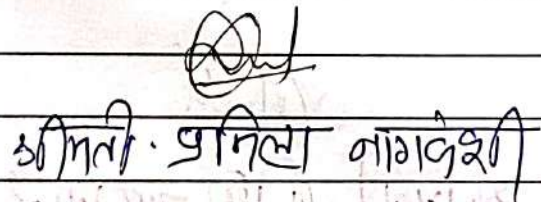 श्रीमती. प्रमिला नागवंशी